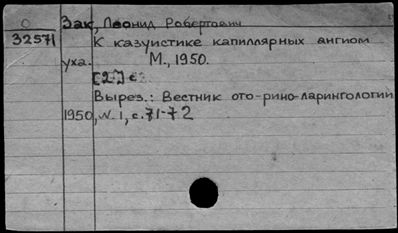 О Зак, Леонид Робертович
32571 К казуистике капиллярных ангиом
уха. М., 1950.
[2] с.
Вырез.: Вестник ото-рино-ларингологии
1950, N. 1, с. 71-72